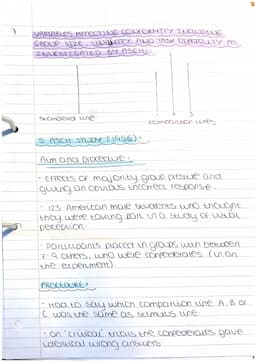 VARIABLES AFFECTING CONFORMITY INCLUDING
GROUP SIZE, UNANIMITY AND TASK DIFFICULTY AS
INVESTIGATED BY ASCH.
standard line
comparison lines
S. ASCH STUDY (1956):
Aim and procedure:
- Effects of majority group pressure and
giving an obvious incorrect response.
- 123 American male students who thought
they were taking part in a study of visual
perception.
- Participants placed in groups with between
7-9 others, who were confederates (in on
the experiment).
PROCEDURE:
- Had to say which comparison line A, B or
C was the same as stimulus line
- On 'critical' trials the confederates gave
identical wrong answers